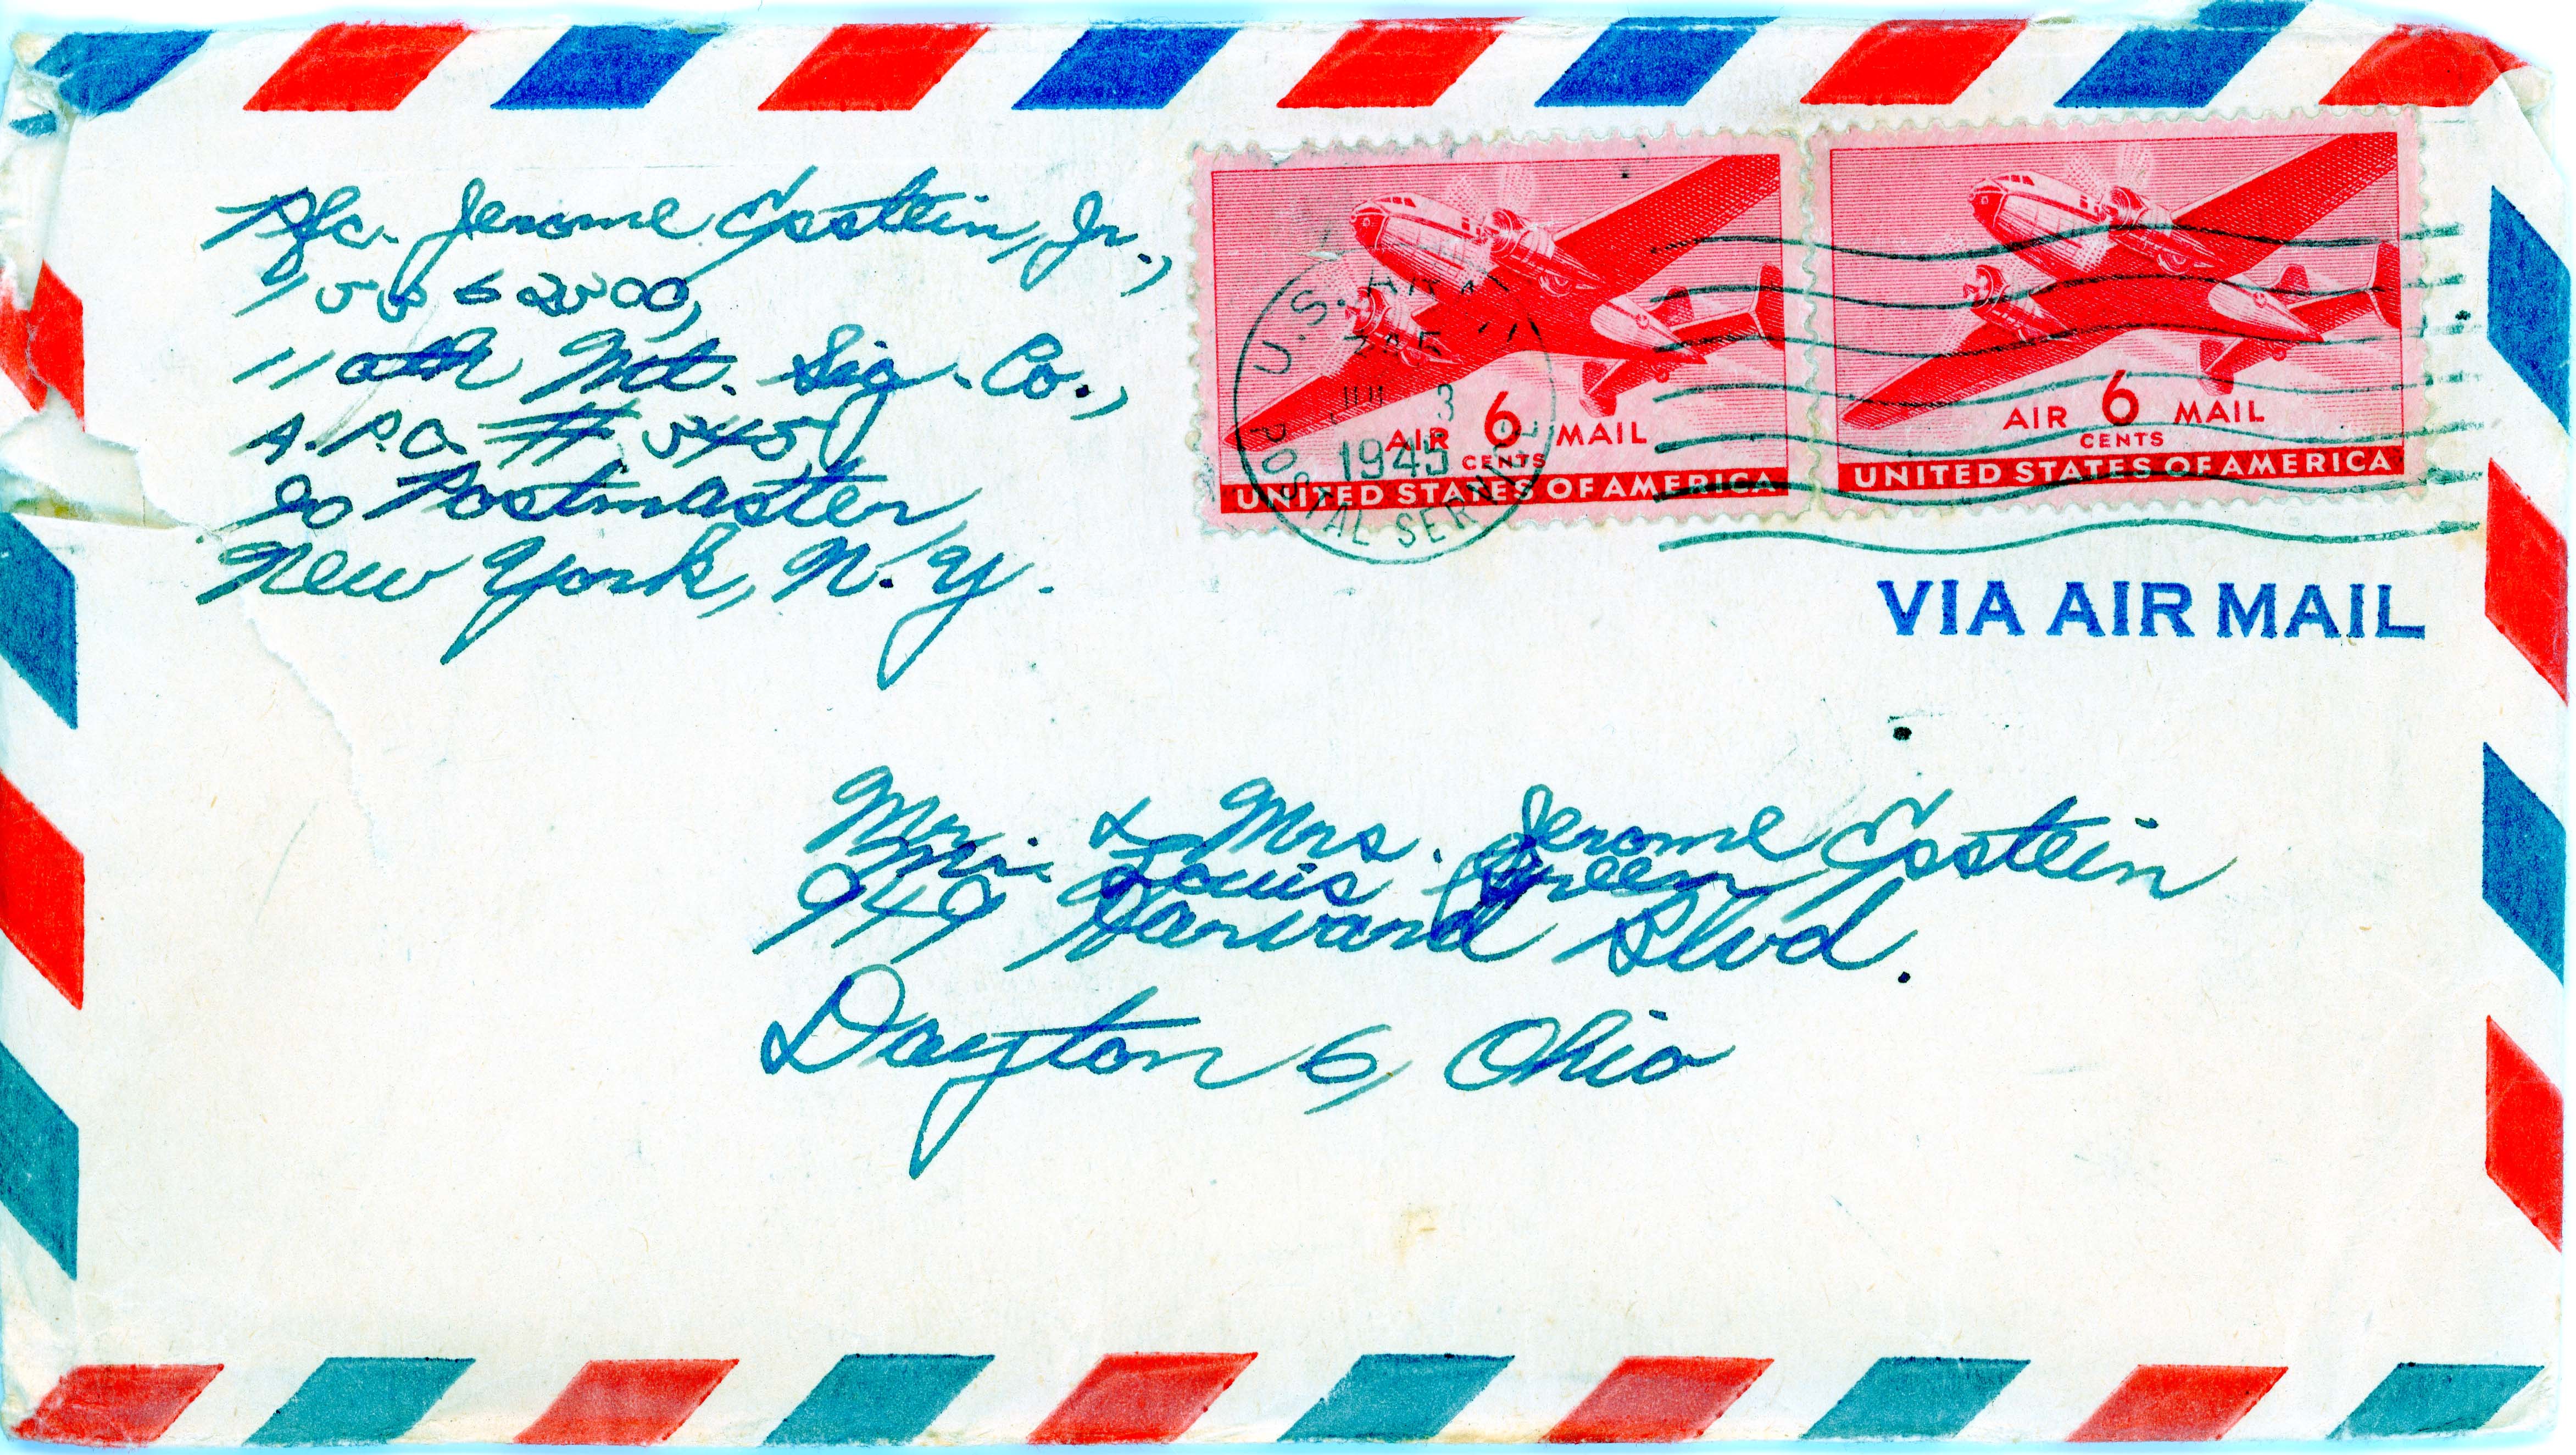 Pfc. Jerome Epstein, Jr.,
110th Mt. Sig. Co.,
A.P.O. # 345
c/o Postmaster,
New York, N.Y.
U.S. AR
POSTAL SERVICE
3
1945
AIR 6 MAIL
CENTS
UNITED STATES OF AMERICA
AIR 6 MAIL
CENTS
UNITED STATES OF AMERICA
VIA AIR MAIL
Mr. & Mrs. Jerome Epstein
Mr. Louis Green
949 Harvard Blvd.
Dayton 6, Ohio